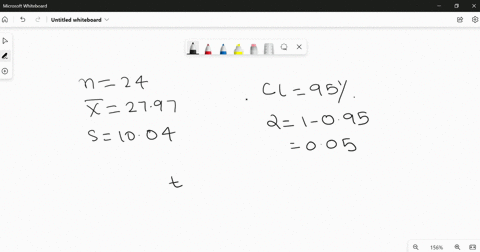 Microsoft Whiteboard
Untitled whiteboard
n = 24
X̅ = 27.97
S = 10.04
CL = 95%.
α = 1 - 0.95
= 0.05
t
156%